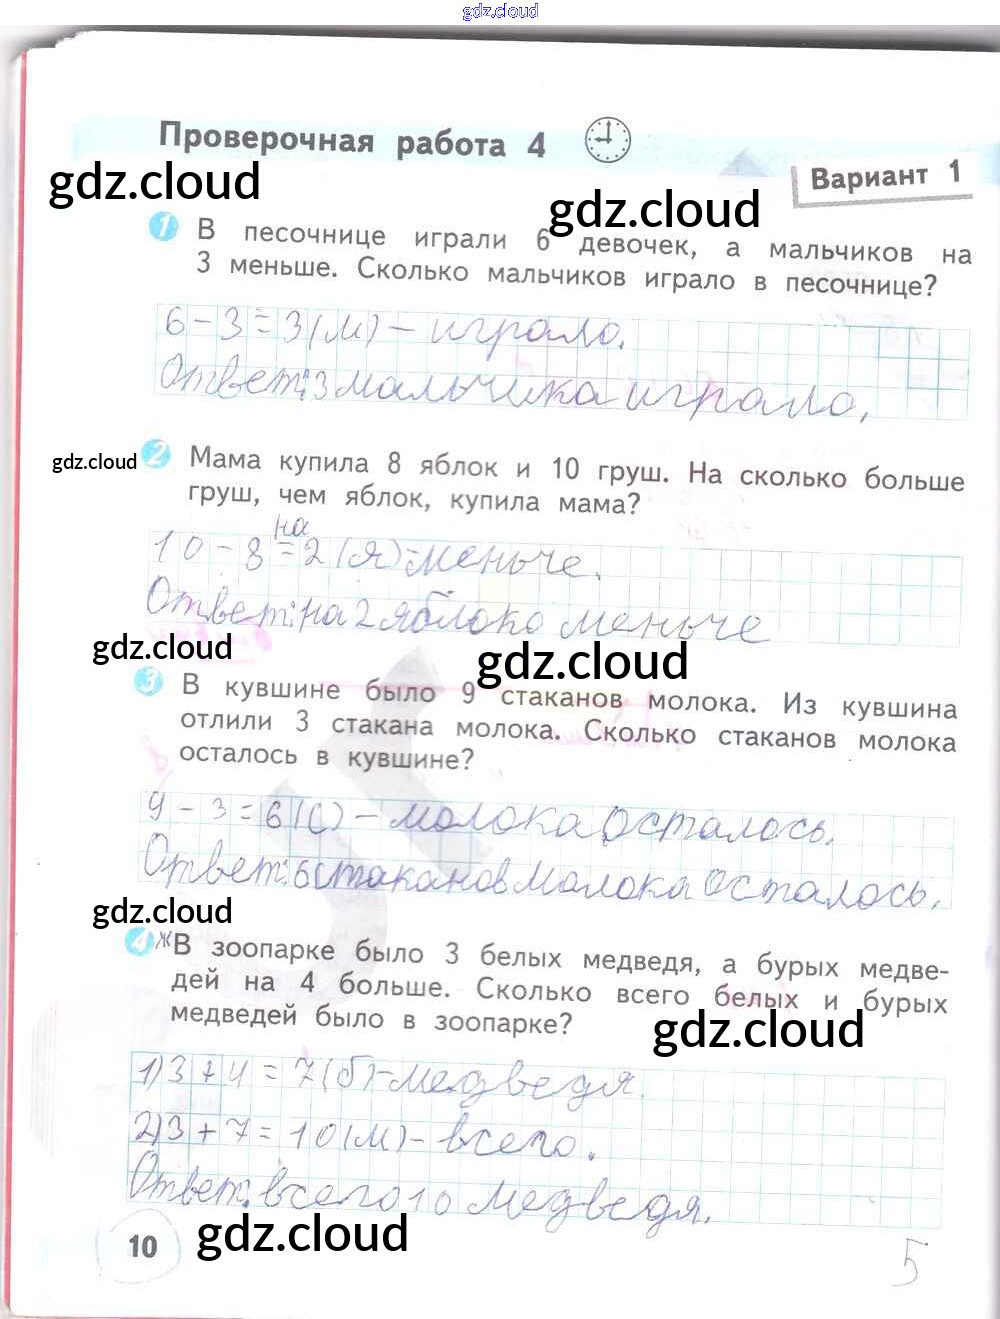 gdz.cloud
Проверочная работа 4
Вариант 1
gdz.cloud
gdz.cloud
1 В песочнице играли 6 девочек, а мальчиков на
3 меньше. Сколько мальчиков играло в песочнице?
6-3=3(м)-играло.
Ответ:3мальчика играло.
gdz.cloud
2 Мама купила 8 яблок и 10 груш. На сколько больше
груш, чем яблок, купила мама?
на
10-8=2(я)-меньче.
Ответ:на 2 яблоко меньче
gdz.cloud
gdz.cloud
3 В кувшине было 9 стаканов молока. Из кувшина
отлили 3 стакана молока. Сколько стаканов молока
осталось в кувшине?
9-3=6(с)-молока осталось.
Ответ:6стаканов молока осталось.
gdz.cloud
4 В зоопарке было 3 белых медведя, а бурых медве-
дей на 4 больше. Сколько всего белых и бурых
медведей было в зоопарке?
gdz.cloud
1)3+4=7(б)-медведя.
2)3+7=10(м)-всего.
Ответ:всего 10 медведя.
10
gdz.cloud
5